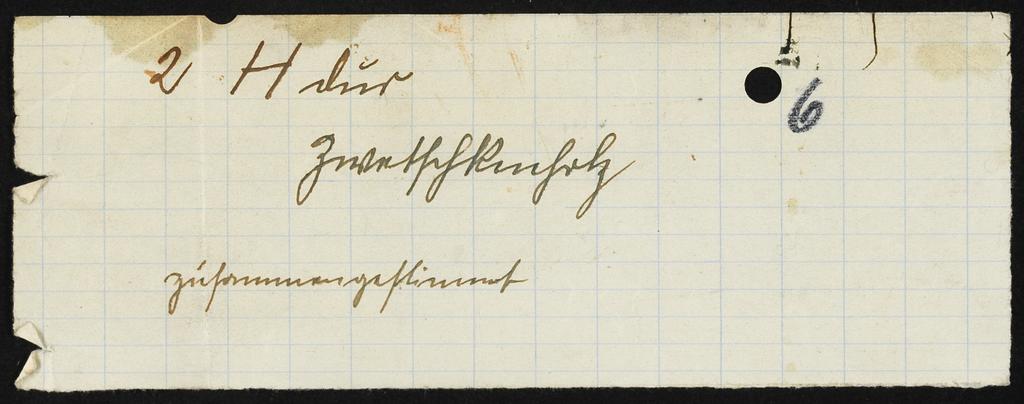 2 H dur
6
Zwetschkenholz
zusammengestimmt